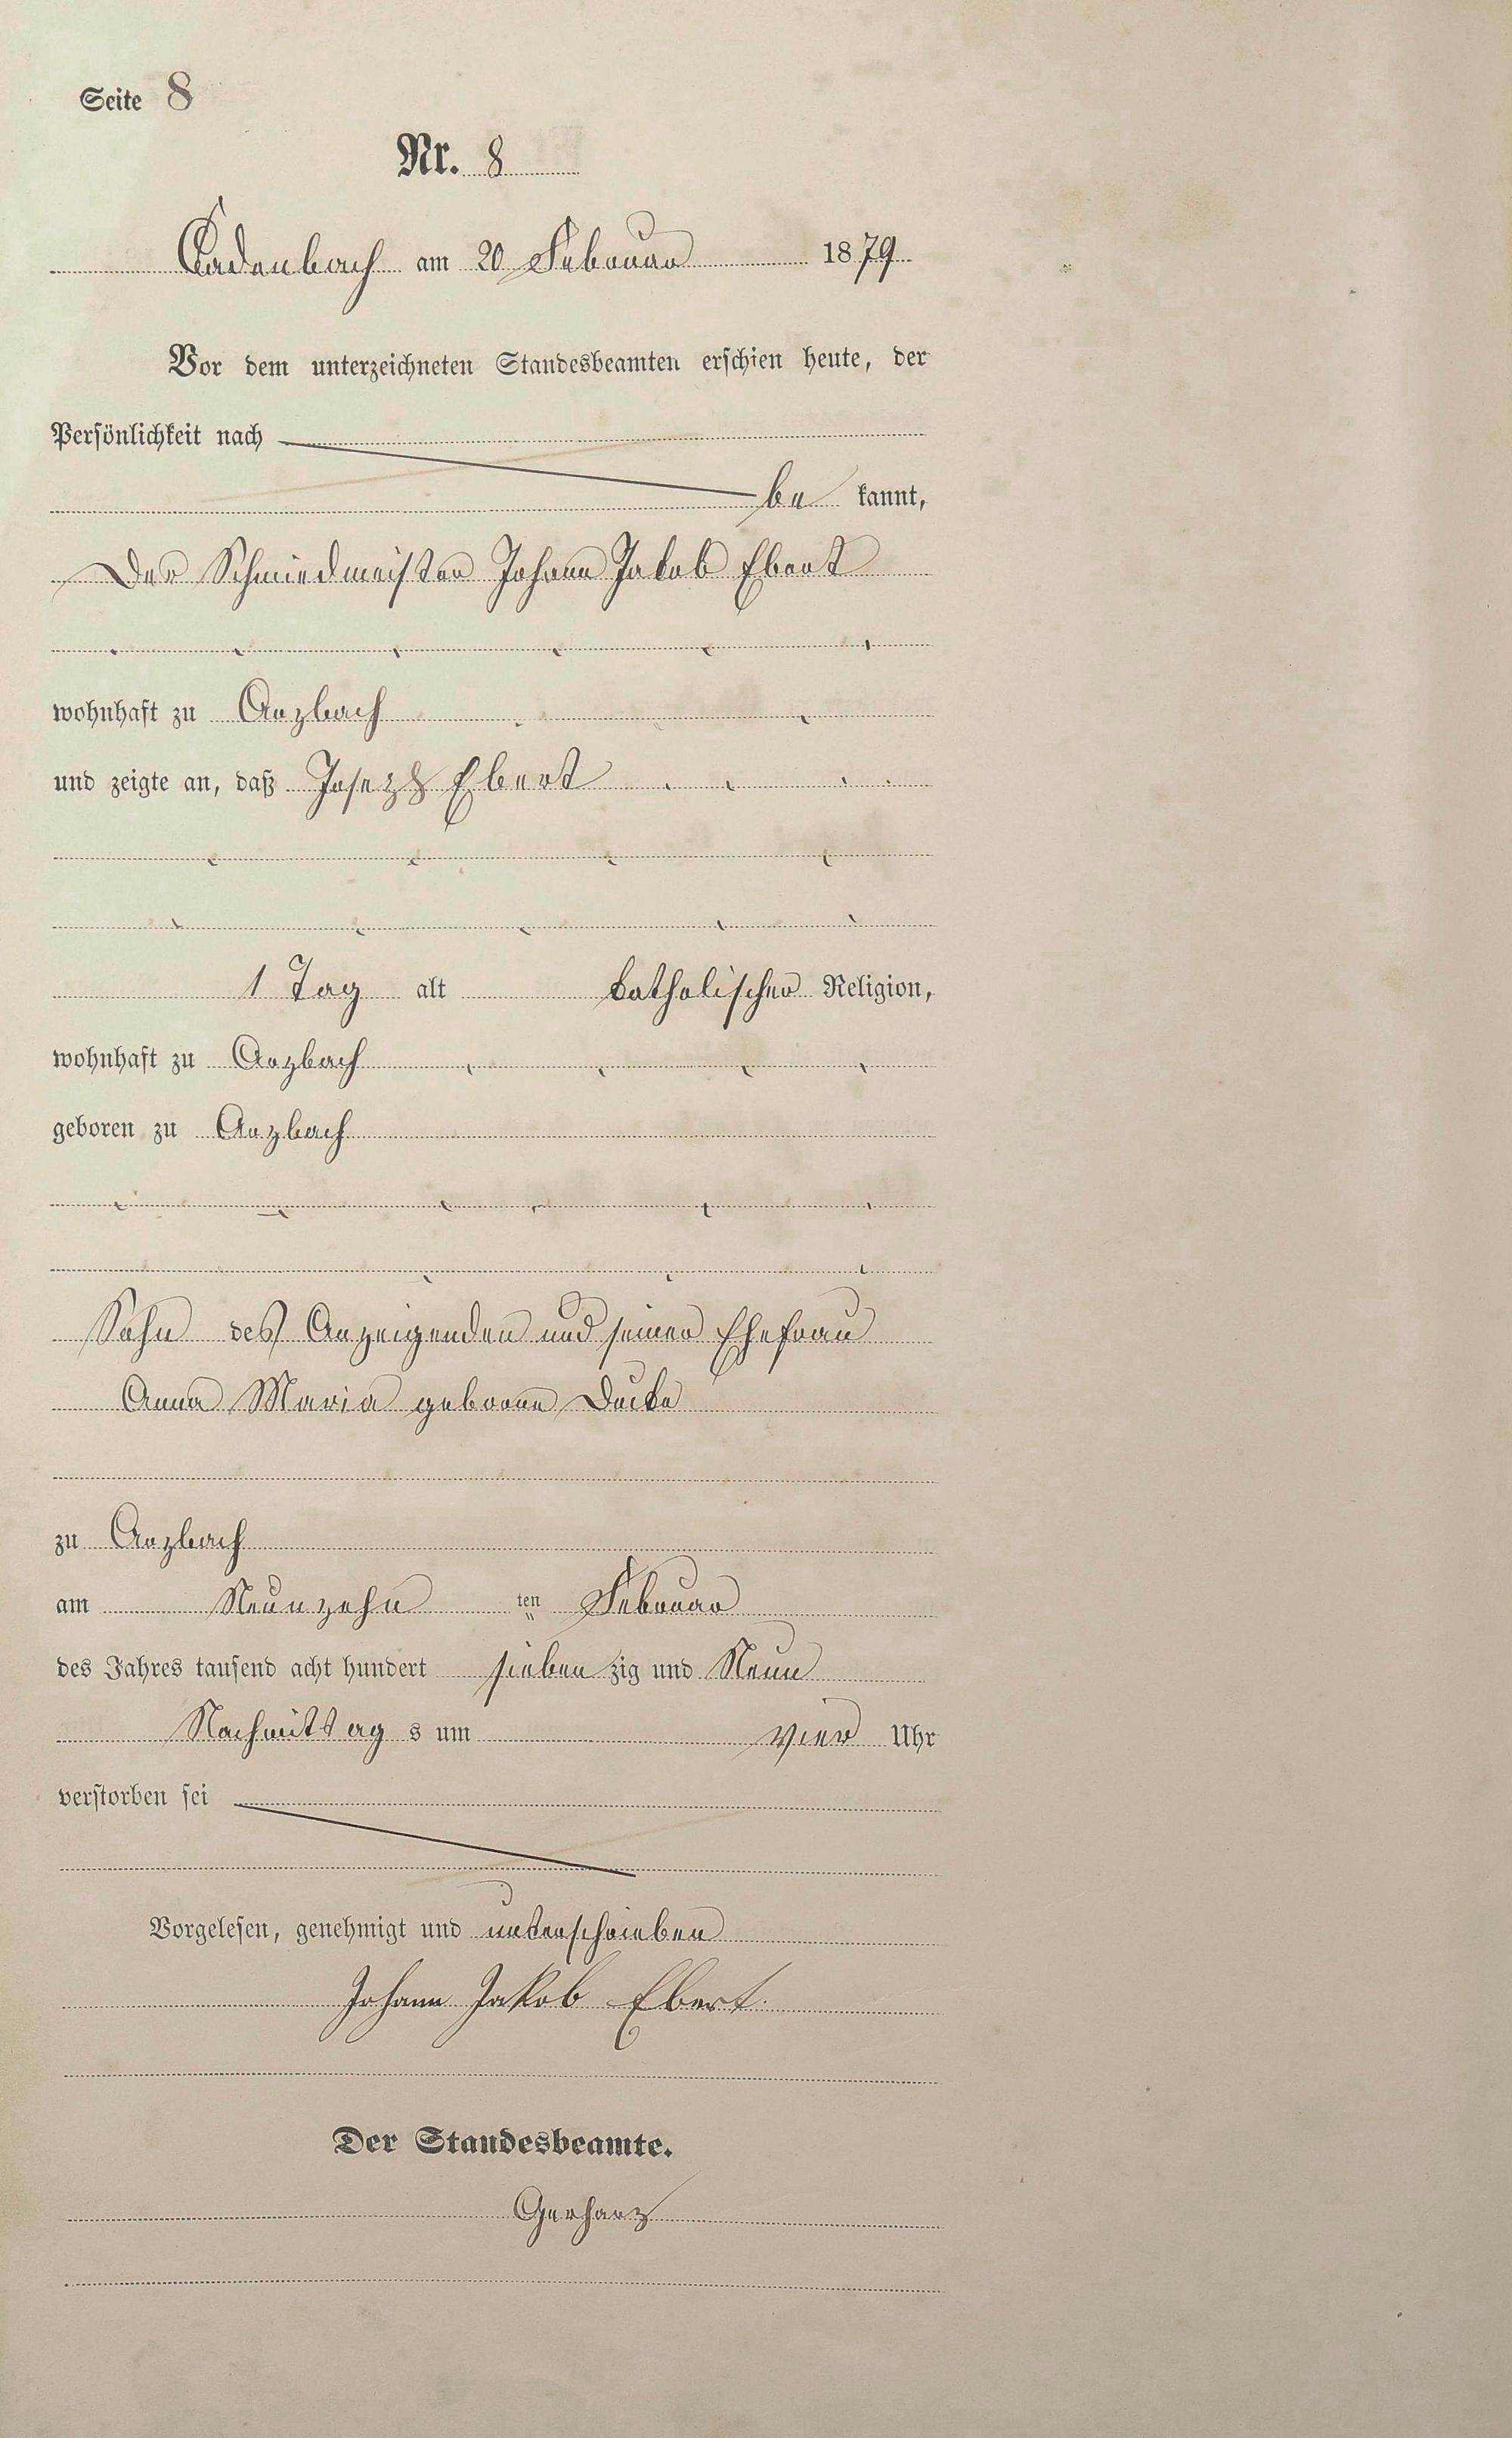 Seite 8
Nr. 8
Cadenbach am 20 Februar 1879
Vor dem unterzeichneten Standesbeamten erschien heute, der
Persönlichkeit nach
be kannt,
Der Schmiedmeister Johann Jakob Ebert
wohnhaft zu Arzbach
und zeigte an, daß Joseph Ebert
1 Tag alt katholischer Religion,
wohnhaft zu Arzbach
geboren zu Arzbach
Sohn des Anzeigenden und seiner Ehefrau
Anna Maria geborne
zu Arzbach
am Neunzehn ten Februar
des Jahres tausend acht hundert sieben zig und Neun
Nachmittag s um vier Uhr
verstorben sei
Vorgelesen, genehmigt und unterschrieben
Johann Jakob Ebert.
Der Standesbeamte.
Gerharz